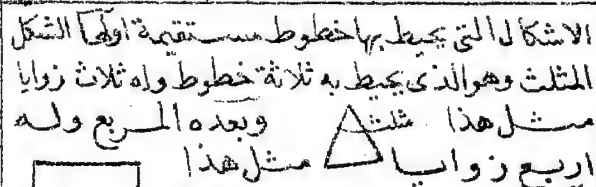 الاشكال التي يحيط بها خطوط مستقيمة اولها الشكل
المثلث وهو الذي يحيط به ثلاثة خطوط وله ثلاث زوايا
مثل هذا مثلث وبعده المربع وله
اربع زوايا مثل هذا